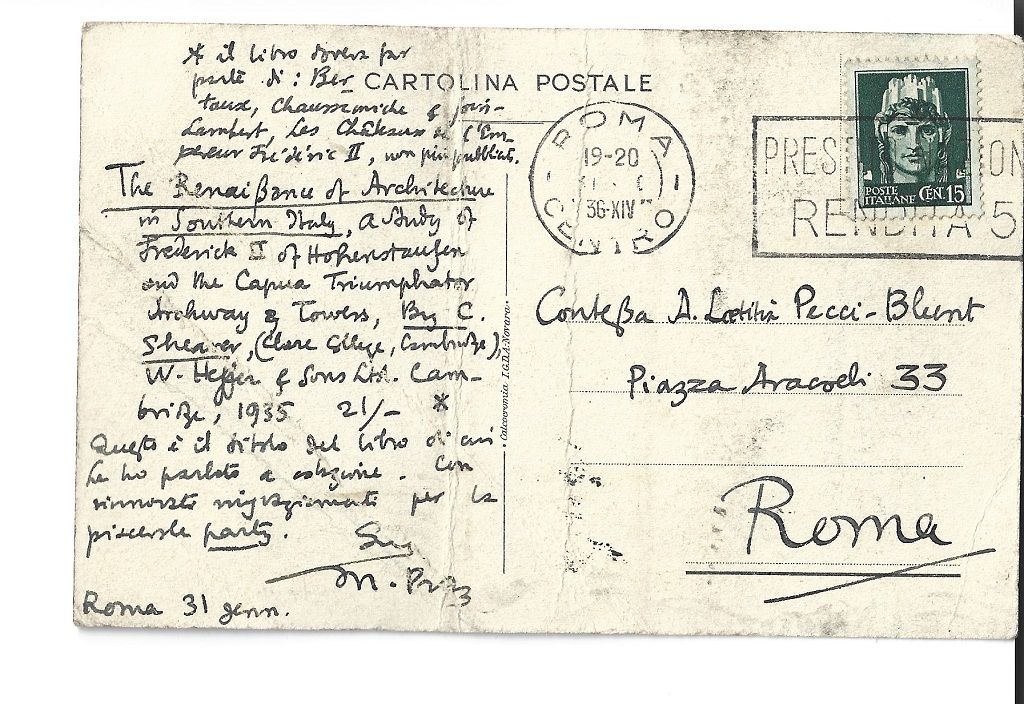 * il libro doveva far
parte di: Ber-
taux, Chaussemiche & Jois-
Lambert, Les Châteaux de l'Em-
pereur Frédéric II, non più pubblicato.
CARTOLINA POSTALE
The Renaißance of Architecture
in Southern Italy, a Study of
Frederick II of Hohenstaufen
and the Capua Triumphator
Archway & Towers, By C.
Shearer, (Clare College, Cambridge),
W. Heffer & Sons Ltd. Cam-
bridge, 1935 21/- *
Questo è il titolo del libro di cui
Le ho parlato a colazione. Con
rinnovati ringraziamenti per la
piacevole party.
Suo
M. Praz
Roma 31 genn.
Calcocromia I.G.D.A. Novara
ROMA
19-20
36-XIV
CENTRO
PRES
RENDITA 5
POSTE
ITALIANE CEN. 15
Conteßa A. Lætitia Pecci-Blunt
Piazza Aracoeli 33
Roma